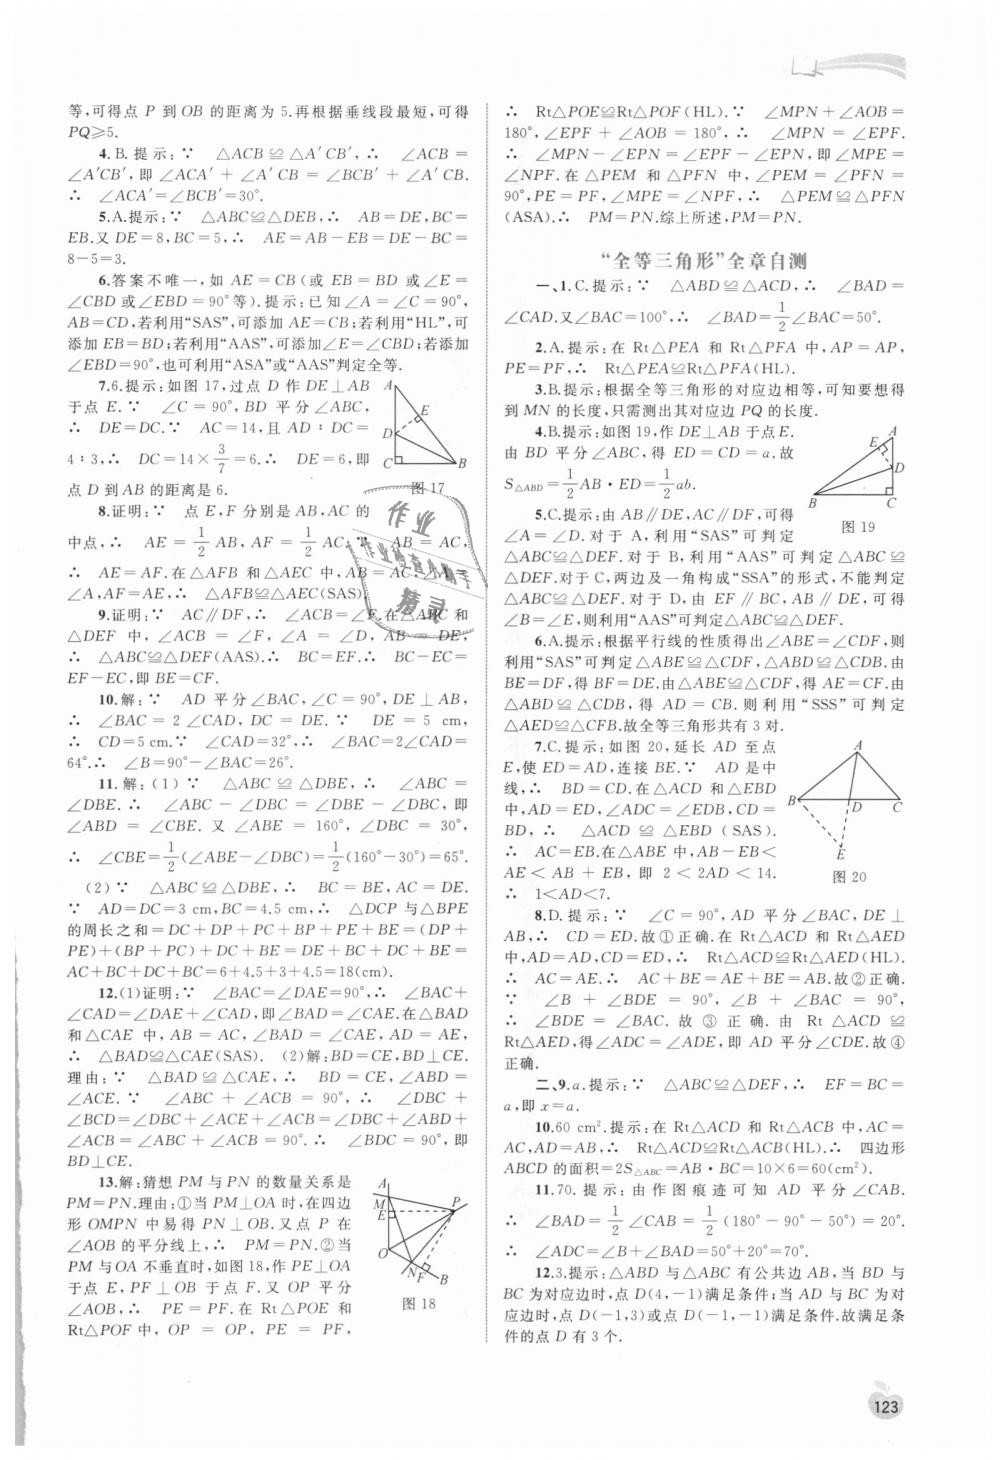 等,可得点 P 到 OB 的距离为 5.再根据垂线段最短,可得
PQ⩾5.
4.B.提示:∵ △ACB≌△A′CB′,∴ ∠ACB=
∠A′CB′,即∠ACA′+∠A′CB=∠BCB′+∠A′CB.
∴ ∠ACA′=∠BCB′=30°.
5.A.提示:∵ △ABC≌△DEB,∴ AB=DE,BC=
EB.又 DE=8,BC=5,∴ AE=AB-EB=DE-BC=
8-5=3.
6.答案不唯一,如 AE=CB(或 EB=BD 或∠E=
∠CBD 或∠EBD=90°等).提示:已知∠A=∠C=90°,
AB=CD,若利用“SAS”,可添加 AE=CB;若利用“HL”,可
添加 EB=BD;若利用“AAS”,可添加∠E=∠CBD;若添加
∠EBD=90°,也可利用“ASA”或“AAS”判定全等.
7.6.提示:如图 17,过点 D 作 DE⊥AB
于点 E.∵ ∠C=90°,BD 平分∠ABC,
∴ DE=DC.∵ AC=14,且 AD∶DC=
4∶3,∴ DC=14×3/7=6.∴ DE=6,即
点 D 到 AB 的距离是 6.
A
E
D
C
B
图 17
8.证明:∵ 点 E,F 分别是 AB,AC 的
中点,∴ AE=1/2AB,AF=1/2AC.∵ AB=AC,
∴ AE=AF.在△AFB 和△AEC 中,AB=AC,∠A=
∠A,AF=AE,∴ △AFB≌△AEC(SAS).
9.证明:∵ AC∥DF,∴ ∠ACB=∠F.在△ABC 和
△DEF 中,∠ACB=∠F,∠A=∠D,AB=DE,
∴ △ABC≌△DEF(AAS).∴ BC=EF.∴ BC-EC=
EF-EC,即 BE=CF.
10.解:∵ AD 平分∠BAC,∠C=90°,DE⊥AB,
∴ ∠BAC=2∠CAD,DC=DE.∵ DE=5 cm,
∴ CD=5 cm.∵ ∠CAD=32°,∴ ∠BAC=2∠CAD=
64°.∴ ∠B=90°-∠BAC=26°.
11.解:(1)∵ △ABC≌△DBE,∴ ∠ABC=
∠DBE.∴ ∠ABC-∠DBC=∠DBE-∠DBC,即
∠ABD=∠CBE.又∠ABE=160°,∠DBC=30°,
∴ ∠CBE=1/2(∠ABE-∠DBC)=1/2(160°-30°)=65°.
(2)∵ △ABC≌△DBE,∴ BC=BE,AC=DE.
∵ AD=DC=3 cm,BC=4.5 cm,∴ △DCP 与△BPE
的周长之和=DC+DP+PC+BP+PE+BE=(DP+
PE)+(BP+PC)+DC+BE=DE+BC+DC+BE=
AC+BC+DC+BC=6+4.5+3+4.5=18(cm).
12.(1)证明:∵ ∠BAC=∠DAE=90°,∴ ∠BAC+
∠CAD=∠DAE+∠CAD,即∠BAD=∠CAE.在△BAD
和△CAE 中,AB=AC,∠BAD=∠CAE,AD=AE,
∴ △BAD≌△CAE(SAS). (2)解:BD=CE,BD⊥CE.
理由:∵ △BAD≌△CAE,∴ BD=CE,∠ABD=
∠ACE.∵ ∠ABC+∠ACB=90°,∴ ∠DBC+
∠BCD=∠DBC+∠ACE+∠ACB=∠DBC+∠ABD+
∠ACB=∠ABC+∠ACB=90°.∴ ∠BDC=90°,即
BD⊥CE.
13.解:猜想 PM 与 PN 的数量关系是
PM=PN.理由:①当 PM⊥OA 时,在四边
形 OMPN 中易得 PN⊥OB.又点 P 在
∠AOB 的平分线上,∴ PM=PN.②当
PM 与 OA 不垂直时,如图 18,作 PE⊥OA
于点 E,PF⊥OB 于点 F.又 OP 平分
∠AOB,∴ PE=PF.在 Rt△POE 和
Rt△POF 中,OP=OP,PE=PF,
A
M
E
P
O
N
F
B
图 18
∴ Rt△POE≌Rt△POF(HL).∵ ∠MPN+∠AOB=
180°,∠EPF+∠AOB=180°,∴ ∠MPN=∠EPF.
∴ ∠MPN-∠EPN=∠EPF-∠EPN,即∠MPE=
∠NPF.在△PEM 和△PFN 中,∠PEM=∠PFN=
90°,PE=PF,∠MPE=∠NPF,∴ △PEM≌△PFN
(ASA).∴ PM=PN.综上所述,PM=PN.
“全等三角形”全章自测
一、1.C.提示:∵ △ABD≌△ACD,∴ ∠BAD=
∠CAD.又∠BAC=100°,∴ ∠BAD=1/2∠BAC=50°.
2.A.提示:在 Rt△PEA 和 Rt△PFA 中,AP=AP,
PE=PF,∴ Rt△PEA≌Rt△PFA(HL).
3.B.提示:根据全等三角形的对应边相等,可知要想得
到 MN 的长度,只需测出其对应边 PQ 的长度.
4.B.提示:如图 19,作 DE⊥AB 于点 E.
由 BD 平分∠ABC,得 ED=CD=a.故
S△ABD=1/2AB·ED=1/2ab.
A
E
D
B
C
图 19
5.C.提示:由 AB∥DE,AC∥DF,可得
∠A=∠D.对于 A,利用“SAS”可判定
△ABC≌△DEF.对于 B,利用“AAS”可判定△ABC≌
△DEF.对于 C,两边及一角构成“SSA”的形式,不能判定
△ABC≌△DEF.对于 D,由 EF∥BC,AB∥DE,可得
∠B=∠E,则利用“AAS”可判定△ABC≌△DEF.
6.A.提示:根据平行线的性质得出∠ABE=∠CDF,则
利用“SAS”可判定△ABE≌△CDF,△ABD≌△CDB.由
BE=DF,得 BF=DE.由△ABE≌△CDF,得 AE=CF.由
△ABD≌△CDB,得 AD=CB.则利用“SSS”可判定
△AED≌△CFB.故全等三角形共有 3 对.
7.C.提示:如图 20,延长 AD 至点
E,使 ED=AD,连接 BE.∵ AD 是中
线,∴ BD=CD.在△ACD 和△EBD
中,AD=ED,∠ADC=∠EDB,CD=
BD,∴ △ACD≌△EBD(SAS).
∴ AC=EB.在△ABE 中,AB-EB<
AE<AB+EB,即 2<2AD<14.
∴ 1<AD<7.
A
B
D
C
E
图 20
8.D.提示:∵ ∠C=90°,AD 平分∠BAC,DE⊥
AB,∴ CD=ED.故①正确.在 Rt△ACD 和 Rt△AED
中,AD=AD,CD=ED,∴ Rt△ACD≌Rt△AED(HL).
∴ AC=AE.∴ AC+BE=AE+BE=AB.故②正确.
∵ ∠B+∠BDE=90°,∠B+∠BAC=90°,
∴ ∠BDE=∠BAC.故③正确.由 Rt△ACD≌
Rt△AED,得∠ADC=∠ADE,即 AD 平分∠CDE.故④
正确.
二、9.a.提示:∵ △ABC≌△DEF,∴ EF=BC=
a,即 x=a.
10.60 cm².提示:在 Rt△ACD 和 Rt△ACB 中,AC=
AC,AD=AB,∴ Rt△ACD≌Rt△ACB(HL).∴ 四边形
ABCD 的面积=2S△ABC=AB·BC=10×6=60(cm²).
11.70.提示:由作图痕迹可知 AD 平分∠CAB.
∴ ∠BAD=1/2∠CAB=1/2(180°-90°-50°)=20°.
∴ ∠ADC=∠B+∠BAD=50°+20°=70°.
12.3.提示:△ABD 与△ABC 有公共边 AB,当 BD 与
BC 为对应边时,点 D(4,-1)满足条件;当 AD 与 BC 为对
应边时,点 D(-1,3)或点 D(-1,-1)满足条件.故满足条
件的点 D 有 3 个.
作业
作业检查小助手
精灵
123